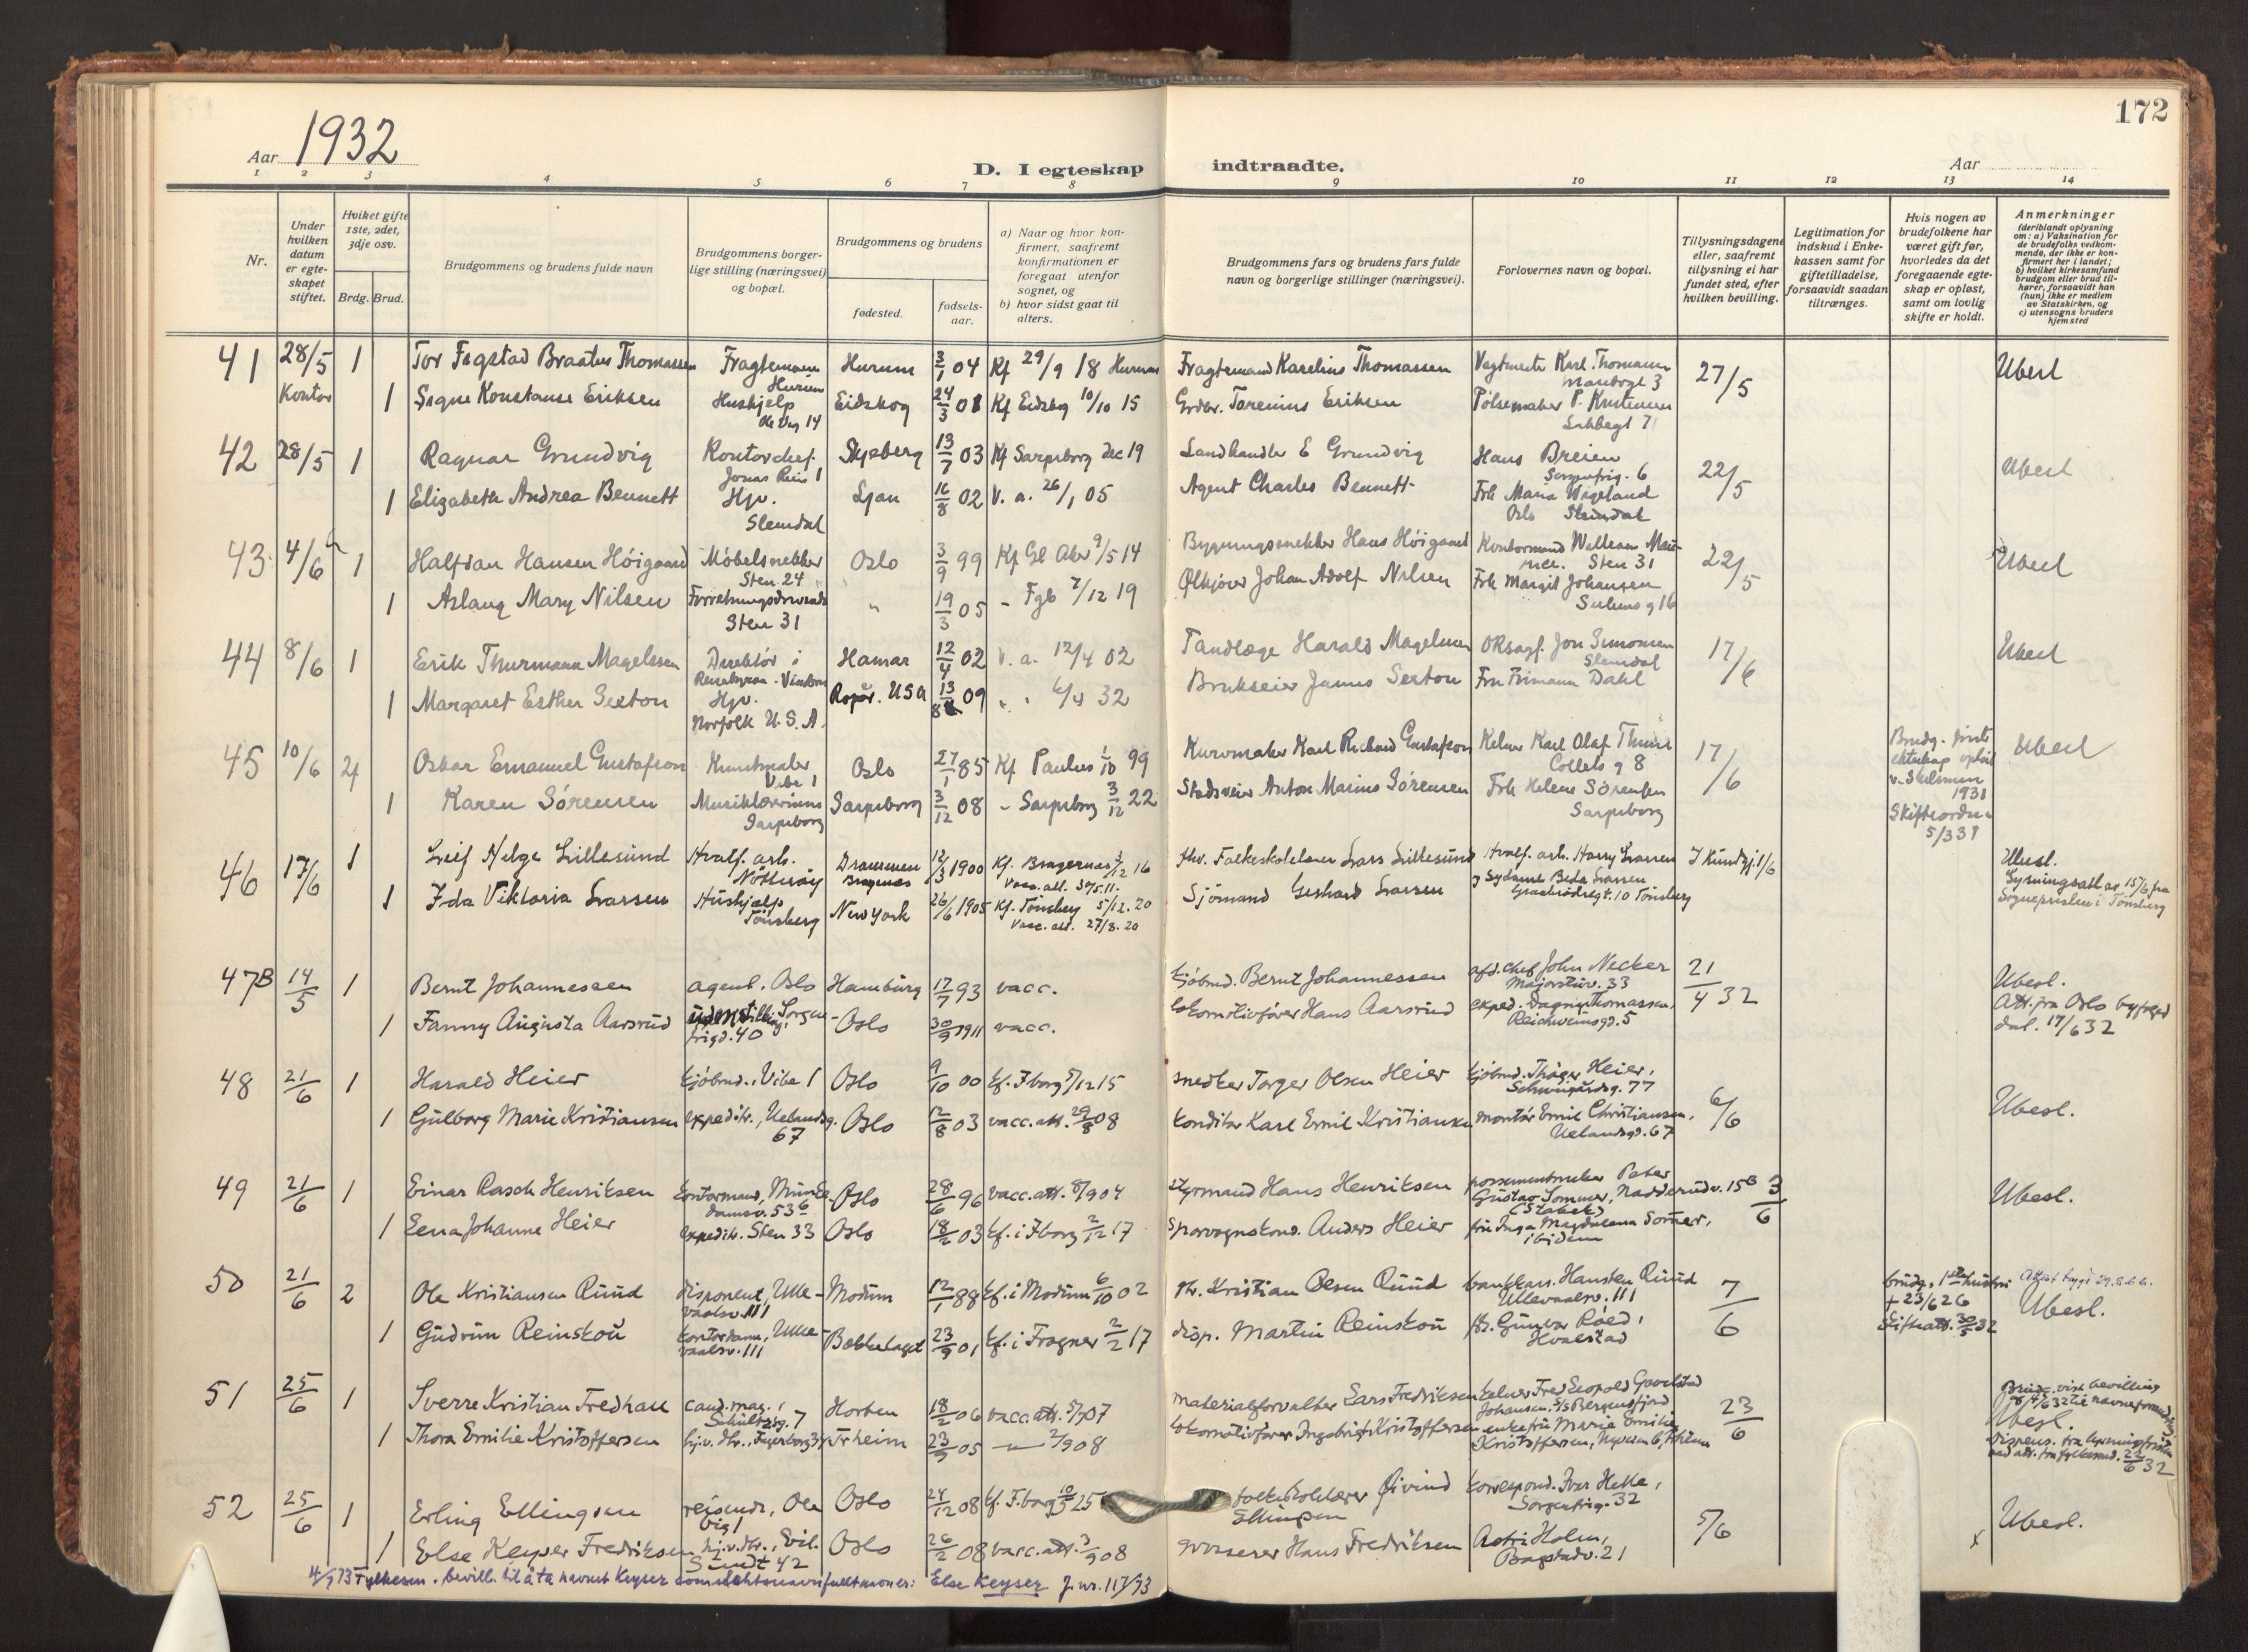 172
Aar 1932
D. I egteskap indtraadte.
Aar
1 2 3 4 5 6 7 8 9 10 11 12 13 14
Nr.
Under hvilken datum er egte-skapet stiftet.
Hviket gifte 1ste, 2det, 3dje osv.
Brdg. Brud.
Brudgommens og brudens fulde navn
Brudgommens borger-lige stilling (næringsvei) og bopæl.
Brudgommens og brudens
fødested.
fødsels-aar.
a) Naar og hvor kon-firmert, saafremt konfirmationen er foregaat utenfor sognet, og
b) hvor sidst gaat til alters.
Brudgommens fars og brudens fars fulde navn og borgerlige stillinger (næringsvei).
Forlovernes navn og bopæl.
Tillysningsdagene eller, saafremt tillysning ei har fundet sted, efter hvilken bevilling.
Legitimation for indskud i Enke-kassen samt for giftetilladelse, forsaavidt saadan tiltrænges.
Hvis nogen av brudefolkene har været gift før, hvorledes da det foregaaende egte-skap er opløst, samt om lovlig skifte er holdt.
Anmerkninger (deriblandt oplysning om: a) Vaksination for de brudefolks vedkom-mende, der ikke er kon-firmert her i landet; b) hvilket kirkesamfund brudgom eller brud til-hører, forsaavidt han (hun) ikke er medlem av Statskirken, og c) utensogns bruders hjemsted
41 28/5 1 Tor Fagstad Braaten Thomassen Fragtemann Hurum Hurum 3/1 04 Kf 29/9 18 Hurum Fragtemand Karelius Thomassen 27/5 Ubesl
Kontor 1 Signe Konstanse Eriksen Hushjelp Eidskog 24/3 01 Kf Eidskog 10/10 15 Grdbr. Torenius Eriksen Pølsemaker P. Kristensen
42 28/5 1 Ragnar Grundvig Kontorchef Skjeberg 13/7 03 Kf Sarpsborg Dec 19 Landhandler E Grundvig Hans Breien Sorgenfrig. 6 22/5 Ubesl
1 Elizabeth Andrea Bennett Hjv. Slemdal Ljan 16/8 02 V. a. 26/1 05 Agent Charles Bennett Frk Maria Wigeland Oslo Slemdal
43 4/6 1 Halfdan Hansen Høigaard Møbelsnekker Sten 24 Oslo 3/9 99 Kf Gl Aker 9/5 14 Bygningssnekker Hans Høigaard Kontormand Sten 31 22/5 Ubesl
1 Aslaug Mary Nilsen Sten 31 " 19/3 05 - Fgb 7/12 19 Ølkjører Johan Adolf Nilsen Frk Margit Johansen
44 8/6 1 Erik Thurmann Magelssen Direktør i Hamar 12/4 02 V. a. 12/4 02 Tandlæge Harald Magelssen ORsagf. Jon Simonsen Slemdal 17/6 Ubesl
1 Margaret Esther Sexton Hjv. Norfolk U.S.A. USA 13/8 09 " " 6/4 32 Brukseier James Sexton Fru Dahl
45 10/6 2 Oskar Emanuel Gustafson Kunstmaler Vibe 1 Oslo 27/1 85 Kf Paulus 1/10 99 Kurvmaker Karl Richard Gustafson Kelner Karl Olaf Collets g 8 17/6 Brudg. første ekteskap opløst v. Skilsmisse 1931 Ubesl
1 Karen Sørensen Musiklærerinne Sarpsborg Sarpsborg 3/12 08 - Sarpsborg 3/12 22 Anton Marius Sørensen Frk Helene Sørensen Sarpsborg
46 17/6 1 Leif Helge Lillesund Hvalf. arb. Nøtterøy Drammen Bragernes 12/3 1900 Kf. Bragernes 3/12 16 Vacc. att. 30/5.11. Lars Lillesund Hvalf. arb. Harry Larsen Ubesl. Lysningsatt av 15/6 fra Sognepresten i Tønsberg
1 Ida Viktoria Larsen Hushjelp Tønsberg New York 26/6 1905 Kf. Tønsberg 5/12. 20 Vacc. att. 27/8. 20 Sjømand Gerhard Larsen
47B 14/5 1 Bernt Johannessen agent. Oslo Hamburg 17/7 93 vacc. kjøbmd. Bernt Johannessen afd. chef John Necker Majorstuv. 33 21/4 32 Ubesl. Att. fra Oslo byfoged dat. 17/6 32
1 Fanny Augusta Aarsrud uten stilling, Sorgen-frigd. 40 Oslo 30/9 1911 vacc. lokomotivfører Hans Aarsrud exped. Dagny Thomassen, Reichweinsgd. 5
48 21/6 1 Harald Heier kjøbmd., Vibe 1 Oslo 9/10 00 kf. F.borg 5/12 15 snedker Torger Olsen Heier kjøbmd. Thoger Heier, Schweigaardsg. 77 6/6 Ubesl.
1 Gulborg Marie Kristiansen expeditr., Uelandsg. 67 Oslo 12/8 03 vacc. att. 29/8 08 konditor Karl Emil Kristiansen montør Emil Christiansen, Uelandsgd. 67
49 21/6 1 Einar Rasch Henriksen kontormand, Munke-damsv. 53 b Oslo 28/6 96 vacc. att. 8/9 04 styrmand Hans Henriksen Peter Gustav Sommer, Nadderudv. 15B (Stabekk) 3/6 Ubesl.
1 Lena Johanne Heier expeditr. Sten 33 Oslo 18/2 03 kf. i F.borg 2/12 17 sporvognskond. Anders Heier fru Inga Magdalena Somer, ibidem
50 21/6 2 Ole Kristiansen Ruud disponent, Ulle-vaalsv. 111 Modum 12/1 88 kf. i Modum 6/10 02 Kristian Olsen Ruud bankkass. Hansten Ruud Ullevaalsv. 111 7/6 brudg. 1ste hustru + 23/6 26 Skifteatt. 30/5 32 Ubesl.
1 Gudrun Reinskou kontordame, Ulle-vaalsv. 111 Bækkelaget 23/9 01 kf. i Frogner 2/2 17 disp. Martin Reinskou Gunvor Røed, Hvalstad
51 25/6 1 Sverre Kristian Fredhall cand. mag., Schultzsg. 7 Horten 18/2 06 vacc. att. 5/9 07 materialforvalter Lars Fredriksen kelner Fred Leopold Johansen, S/S Bergensfjord 23/6 Ubesl.
1 Thora Emilie Kristoffersen Tr.heim 23/9 05 — " — 2/9 08 lokomotivfører Ingebrigt Kristoffersen enkefru Maria Emilie Kristoffersen
52 25/6 1 Erling Ellingsen reisende, Ole Vig 1 Oslo 24/12 08 kf. F.borg 10/5 25 folkeskolelærer Øivind Ellingsen korrespond. Iver Helle, Sorgenfrig. 32 5/6 Ubesl.
1 Else Keyser Fredriksen hj. v. fr., Eil. Sundt 42 Oslo 26/2 08 vacc. att. 3/9 08 grosserer Hans Fredriksen Astri Holm, Bogstadv. 21 x
4/9 73 Fylkesm. bevill. til å ta navnet Keyser som slektsnavn fullt navn er: Else Keyser J.nr. 117/73